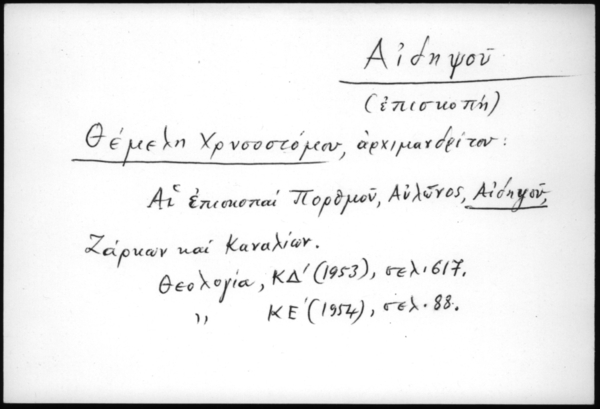 Αἰδηψοῦ
(ἐπισκοπή)
Θέμελη Χρυσοστόμου, ἀρχιμανδρίτου:
Αἱ ἐπισκοπαί Πορθμοῦ, Αὐλῶνος, Αἰδηψοῦ,
Ζάρκων καί Καναλίων.
Θεολογία, ΚΔ΄(1953), σελ. 617.
,, ΚΕ΄(1954), σελ. 88.